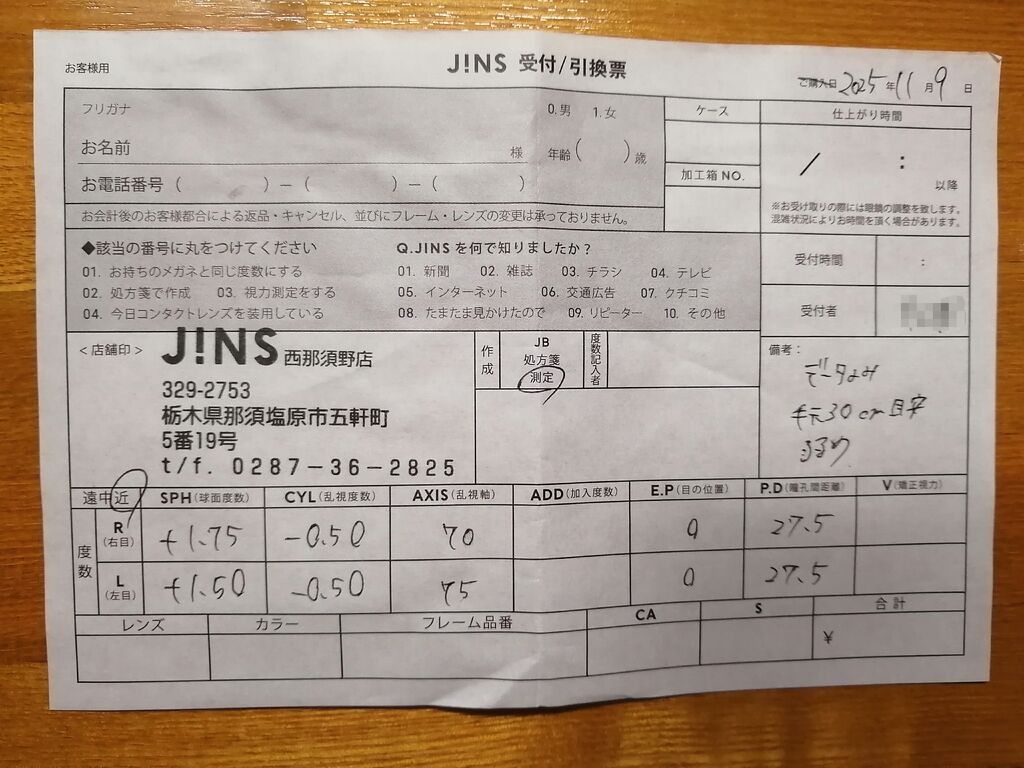 お客様用
J!NS 受付/引換票
ご購入日 2025年11月9日
フリガナ
0.男 1.女
お名前 様
年齢( )歳
お電話番号 ( ) ― ( ) ― ( )
お会計後のお客様都合による返品・キャンセル、並びにフレーム・レンズの変更は承っておりません。
ケース
加工箱 NO.
仕上がり時間
/ :
以降
※お受け取りの際には眼鏡の調整を致します。
混雑状況によりお時間を頂く場合があります。
◆該当の番号に丸をつけてください
01. お持ちのメガネと同じ度数にする
02. 処方箋で作成 03. 視力測定をする
04. 今日コンタクトレンズを装用している
Q.JINS を何で知りましたか?
01. 新聞 02. 雑誌 03. チラシ 04. テレビ
05. インターネット 06. 交通広告 07. クチコミ
08. たまたま見かけたので 09. リピーター 10. その他
受付時間 :
受付者
<店舗印>
J!NS 西那須野店
329-2753
栃木県那須塩原市五軒町
5番19号
t/f. 0287-36-2825
作成
JB
処方箋
測定
度数記入者
備考:
データのみ
手元30cm目安
遠中近 SPH(球面度数) CYL(乱視度数) AXIS(乱視軸) ADD(加入度数) E.P(目の位置) P.D(瞳孔間距離) V(矯正視力)
度数
R(右目) +1.75 -0.50 70 0 27.5
L(左目) +1.50 -0.50 75 0 27.5
レンズ カラー フレーム品番 CA S 合計
¥